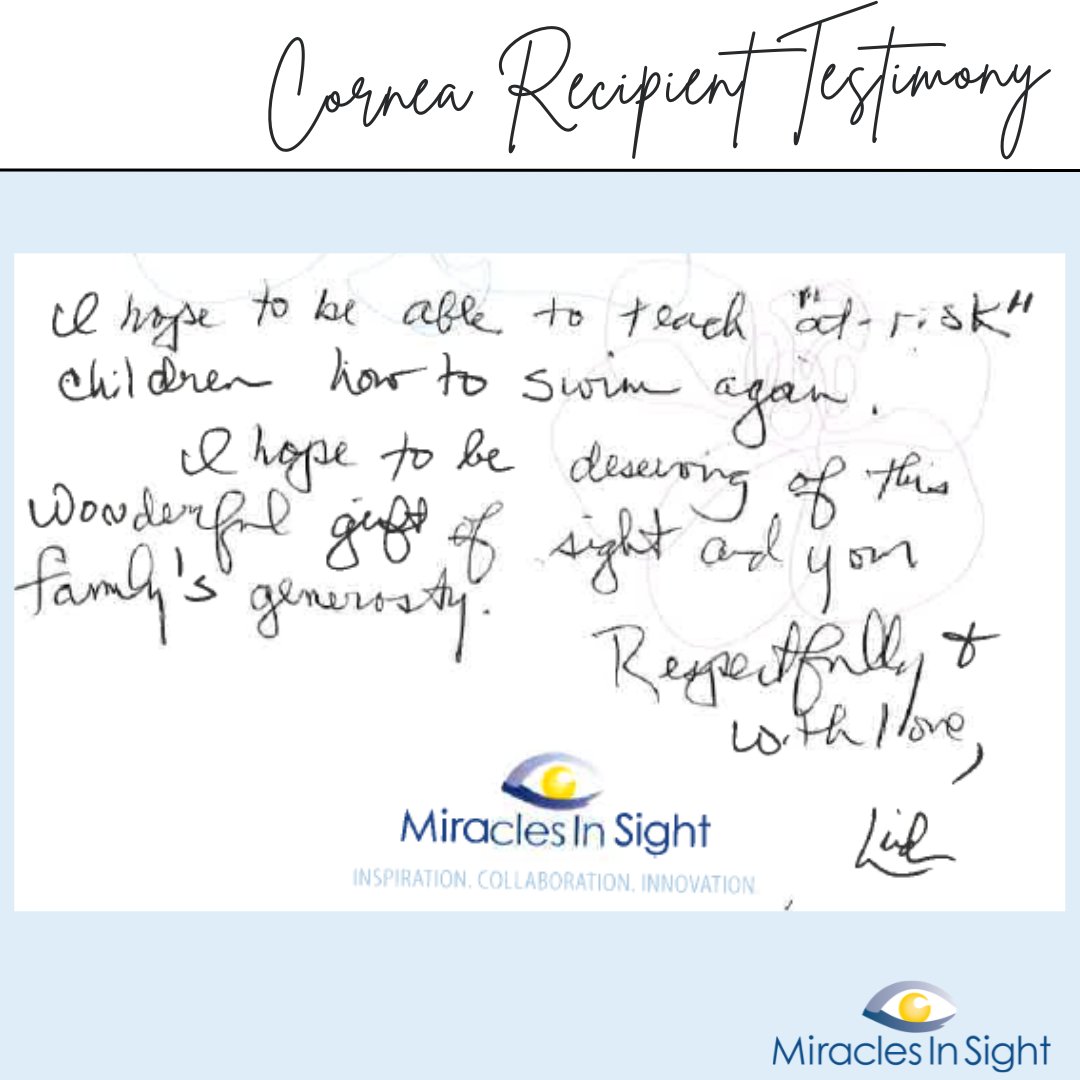 Cornea Recipient Testimony
I hope to be able to teach "at-risk"
children how to swim again.
I hope to be deserving of this
wonderful gift of sight and your
family's generosty.
Respectfully &
with love,
Miracles In Sight
INSPIRATION. COLLABORATION. INNOVATION
Miracles In Sight